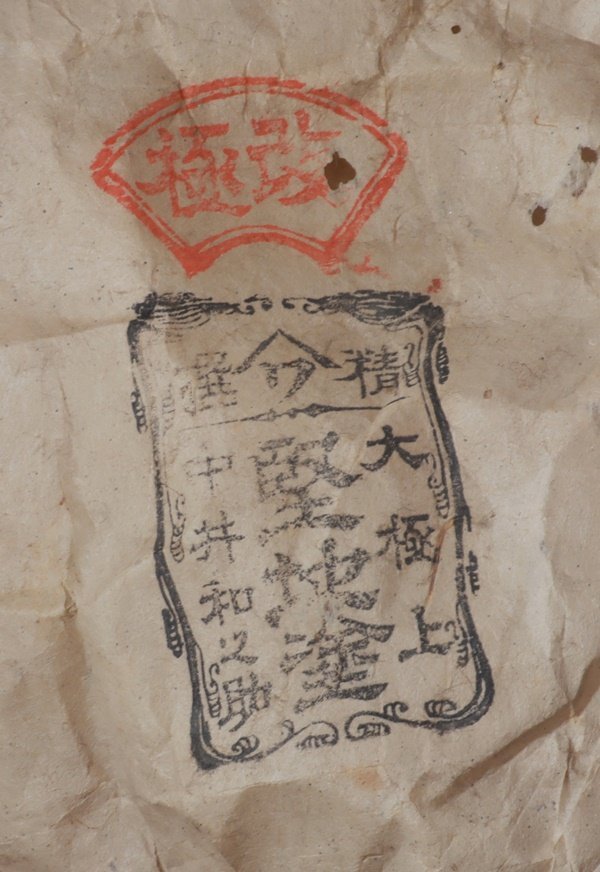 改極
精ワ撰
大極上
堅地塗
中井和之助